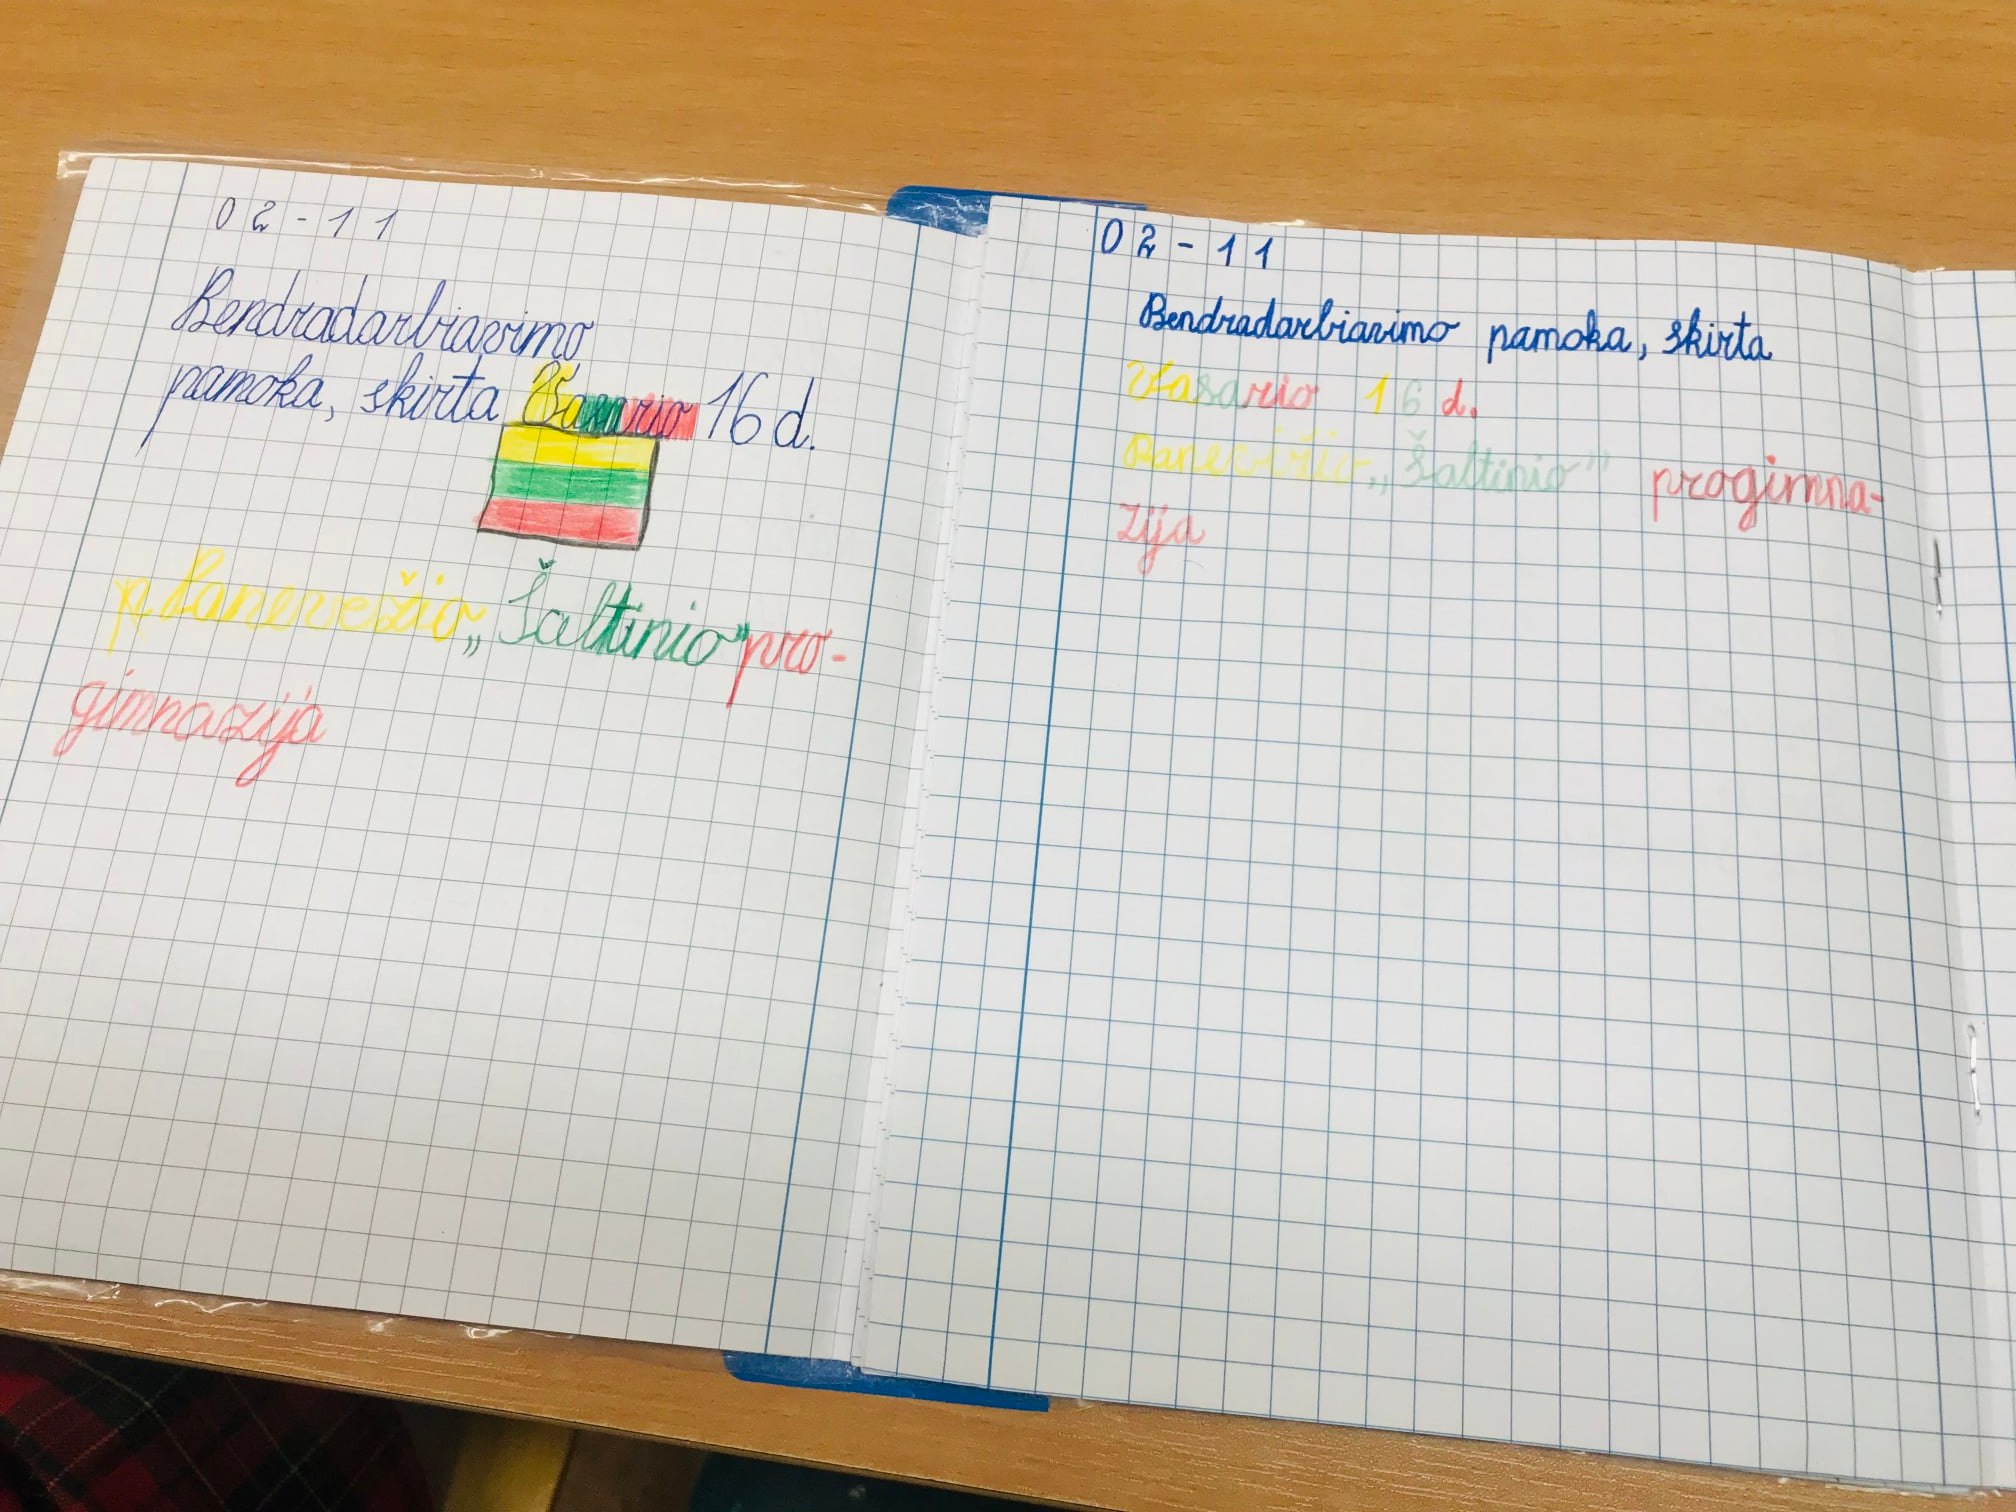 02-11
Bendradarbiavimo
pamoka, skirta Vasario 16 d.
Panevežio „Šaltinio" pro-
gimnazija
02-11
Bendradarbiavimo pamoka, skirta
Vasario 16 d.
„Šaltinio" progimna-
zija